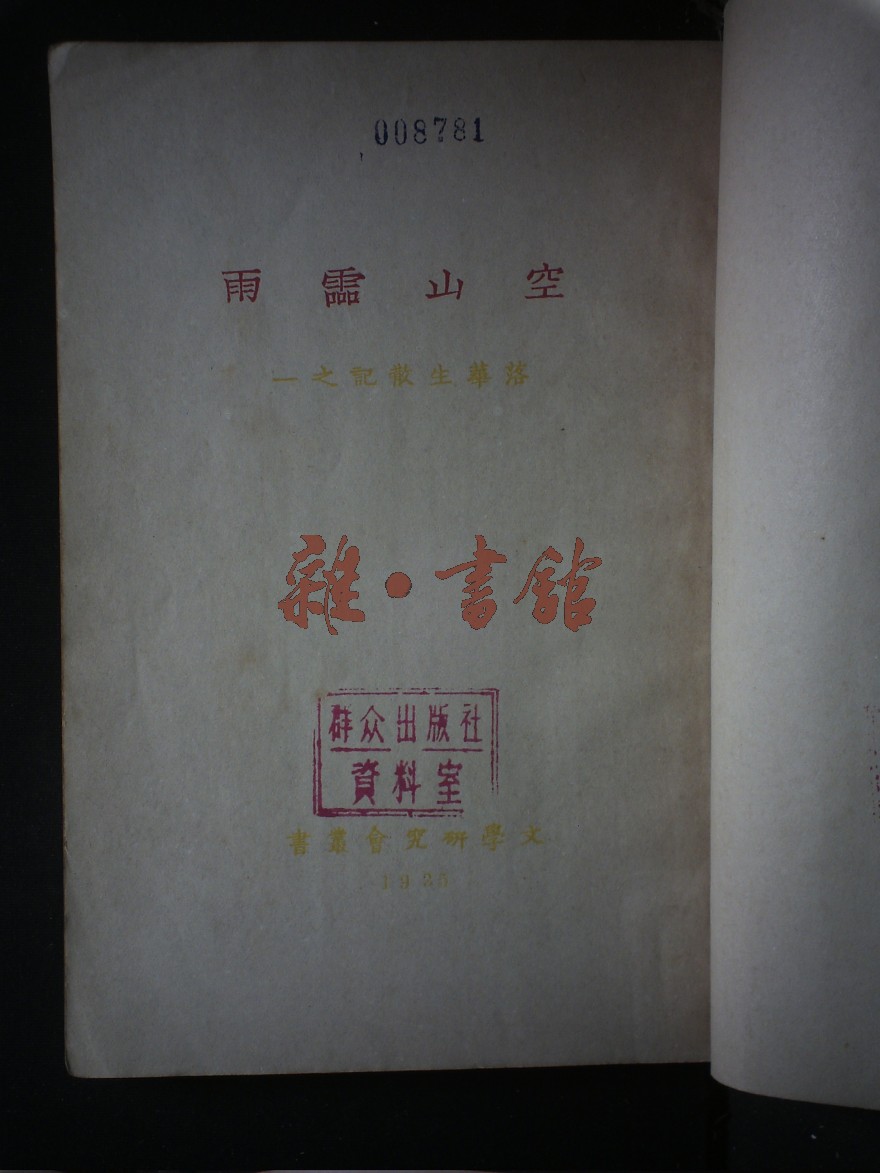 008781
空山靈雨
落華生散記之一
雜·書館
群众出版社
資料室
文學研究會叢書
1925